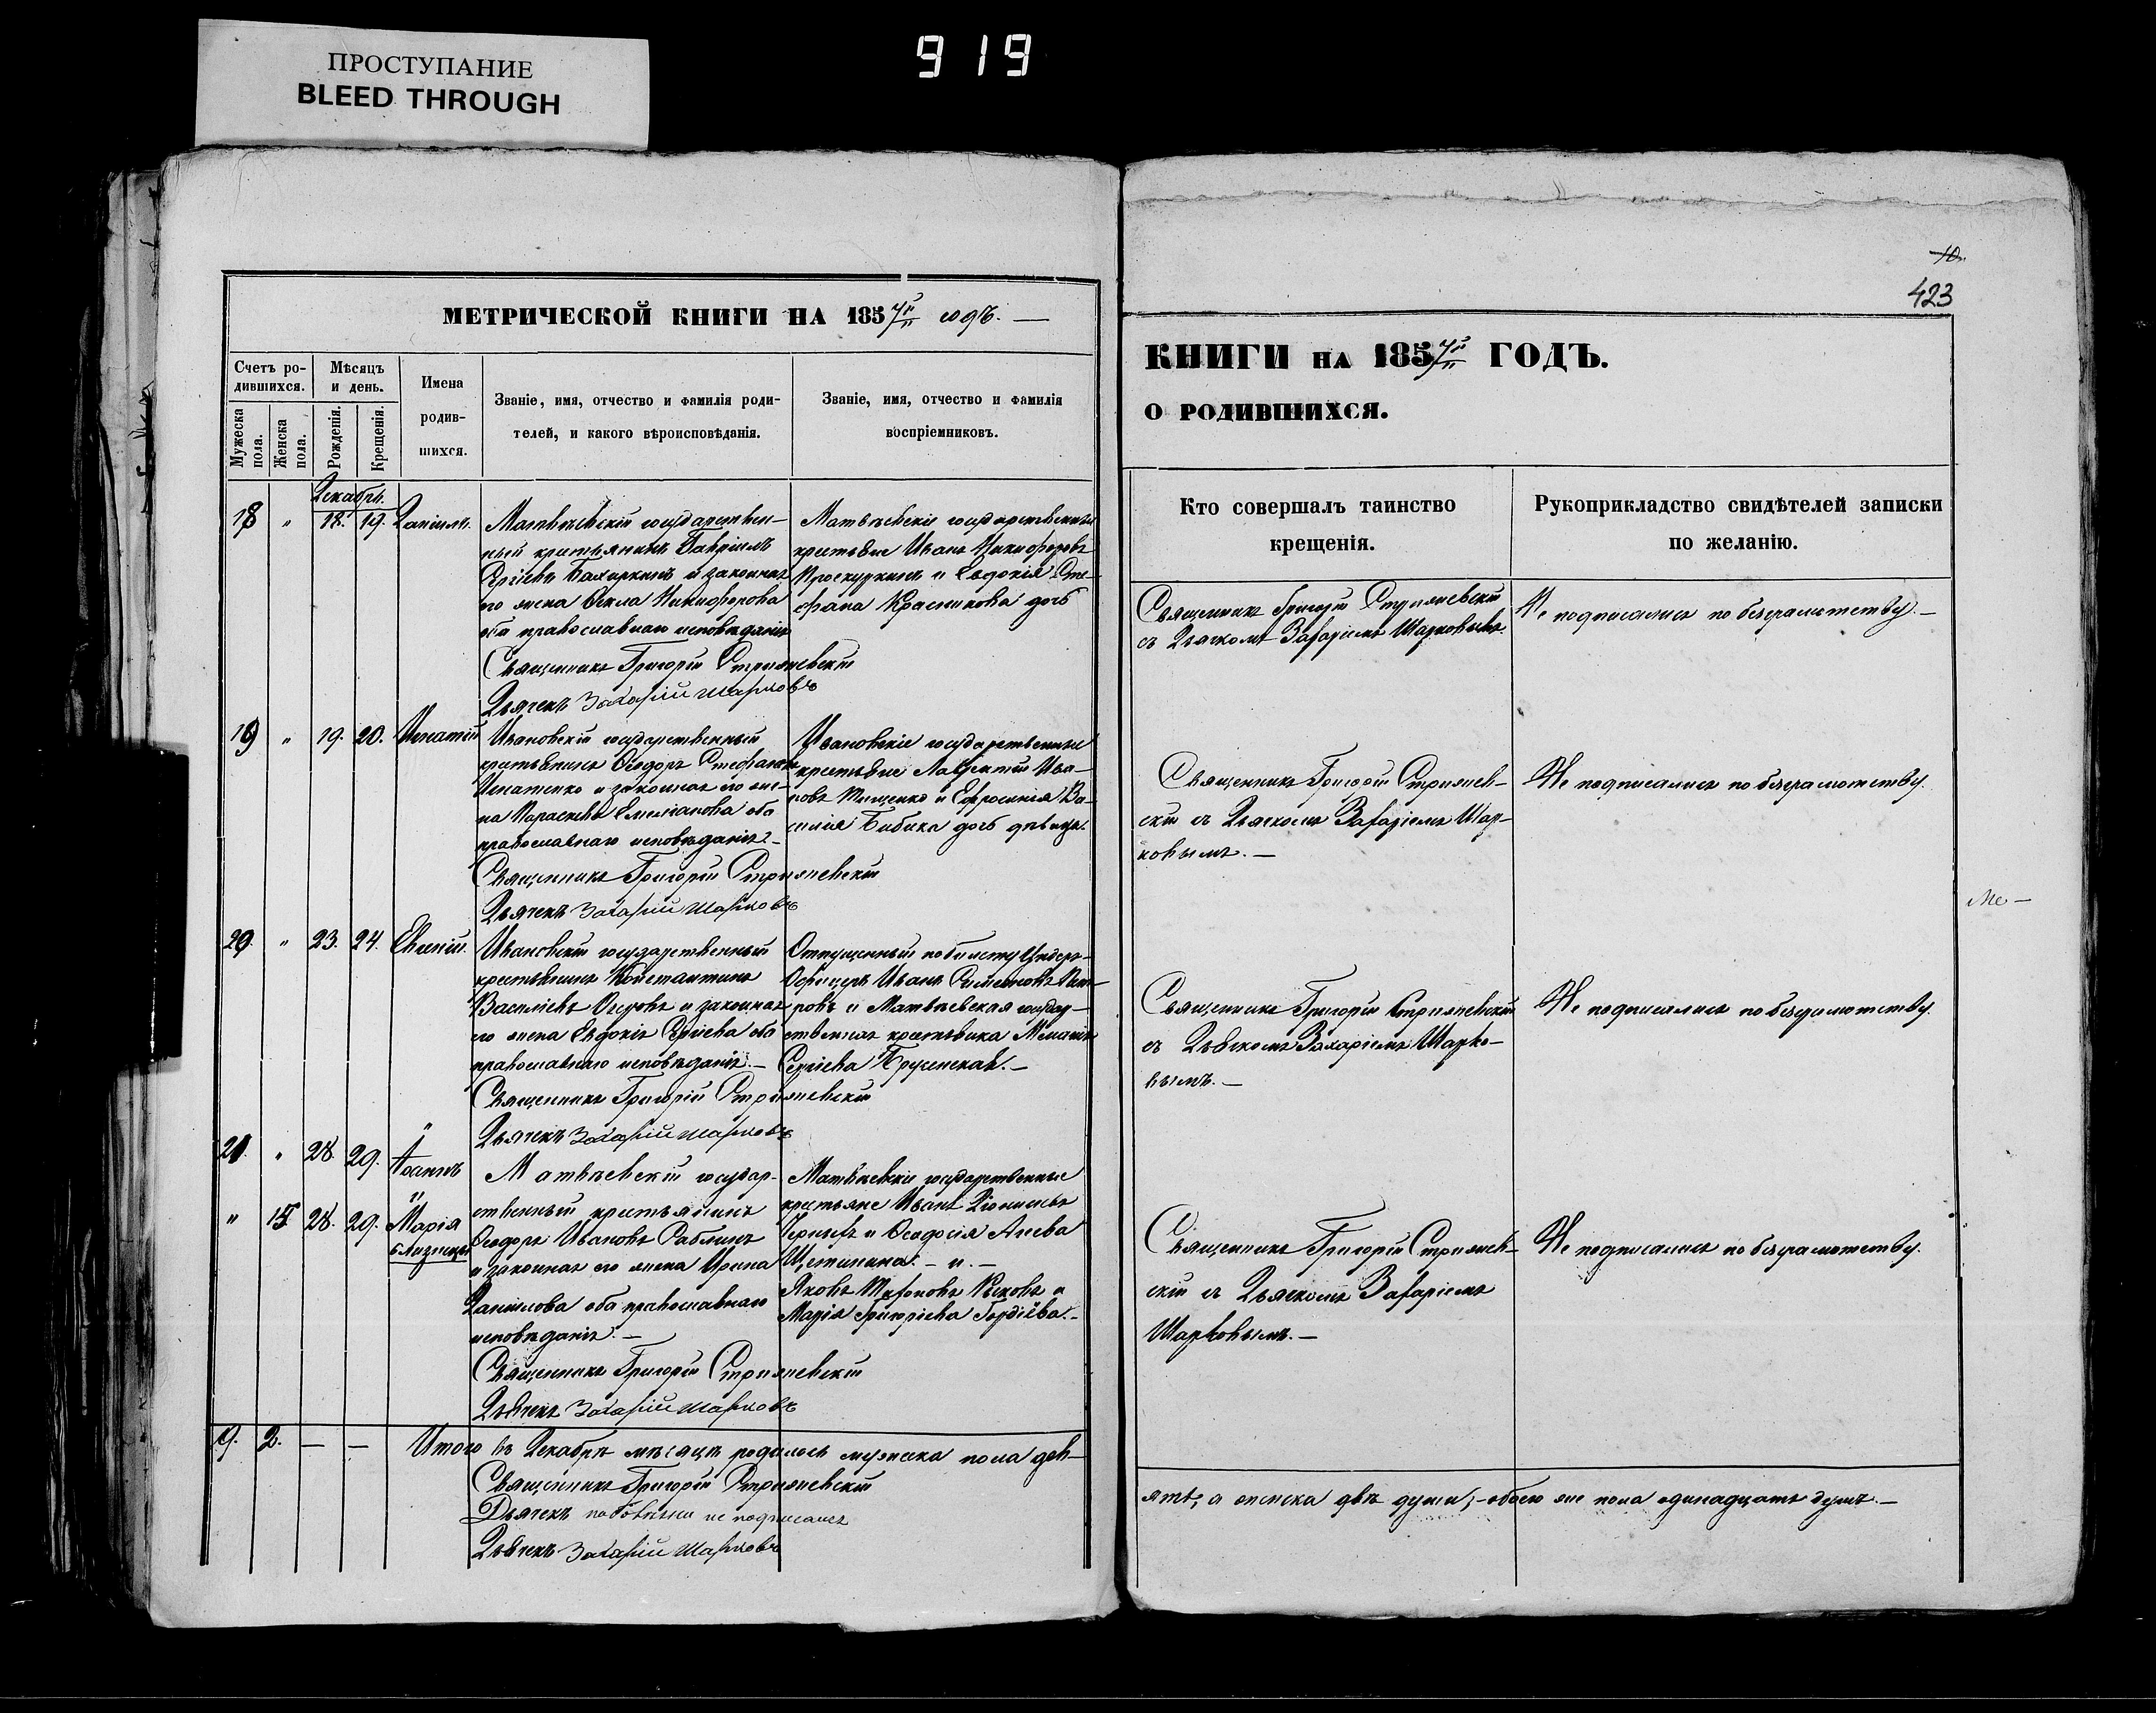 ПРОСТУПАНИЕ
BLEED THROUGH
919
МЕТРИЧЕСКОЙ КНИГИ НА 1857й годъ. —
Счетъ ро-
дившихся.
Мѣсяцъ
и день.
Имена
родив-
шихся.
Званіе, имя, отчество и фамилія роди-
телей, и какого вѣроисповѣданія.
Званіе, имя, отчество и фамилія
воспріемниковъ.
Мужеска
пола.
Женска
пола.
Рожденія.
Крещенія.
Декабрь.
18 " 18. 19. Даніилъ.
Матвѣевскій государствен-
ный крестьянинъ Гавріилъ
Сергіевъ и законная
его жена Никифорова
оба православнаго исповѣданія
Священникъ Григорій Стрижевскій
Дьячекъ Захарій Шарковъ
Матвѣевскіе государственные
крестьяне Иванъ Никифоровъ
Проскуринъ и Евдокія Сте-
фана Красникова дочь
19 " 19. 20. Игнатій
Ивановскій государственный
крестьянинъ Ѳеодоръ Стефановъ
Игнатенко и законная его же-
на Параскева Емеліанова оба
православнаго исповѣданія. —
Священникъ Григорій Стрижевскій
Дьячекъ Захарій Шарковъ
Ивановскіе государственные
крестьяне Лаврентій Ива-
новъ Тищенко и Ефросинія Ва-
силія Бибика дочь дѣвица.
20. " 23. 24. Евгеній.
Ивановскій государственный
крестьянинъ Константинъ
Васильевъ и законная
его жена Евдокія Сергіева оба
православнаго исповѣданія. —
Священникъ Григорій Стрижевскій
Дьячекъ Захарій Шарковъ
Отпущенный по билету Ундеръ-
Офицеръ Иванъ Симеоновъ Пет-
ровъ и Матвѣевская государ-
ственная крестьянка Меланія
Сергіева
21. " 28. 29. Іоаннъ
" 15. 28. 29. Марія
близнецы
Матвѣевскій государ-
ственный крестьянинъ
Ѳеодоръ Ивановъ Саблинъ
и законная его жена Ирина
Даніилова оба православнаго
исповѣданія. —
Священникъ Григорій Стрижевскій
Дьячекъ Захарій Шарковъ
Матвѣевскіе государственные
крестьяне Иванъ Діонисіевъ
и Ѳеодосія
Щетинина. — и. —
Яковъ и
Марія Григоріева Гордіева. —
9. 2. — — Итого въ Декабрѣ мѣсяцѣ родилось мужеска пола дев-
Священникъ Григорій Стрижевскій
Дьячекъ не подписался
Дьячекъ Захарій Шарковъ
10.
423
КНИГИ НА 1857й ГОДЪ.
О РОДИВШИХСЯ.
Кто совершалъ таинство
крещенія.
Рукоприкладство свидѣтелей записки
по желанію.
Священникъ Григорій Стрижевскій
съ Дьячкомъ Захаріемъ Шарковымъ.
Не подписались по безграмотству. —
Священникъ Григорій Стрижев-
скій съ Дьячкомъ Захаріемъ Шар-
ковымъ. —
Не подписались по безграмотству.
Ме —
Священникъ Григорій Стрижевскій
съ Дьячкомъ Захаріемъ Шарко-
вымъ. —
Не подписались по безграмотству.
Священникъ Григорій Стрижев-
скій съ Дьячкомъ Захаріемъ
Шарковымъ. —
Не подписались по безграмотству.
ять, а женска двѣ души, — обоего же пола одинадцать душъ. —